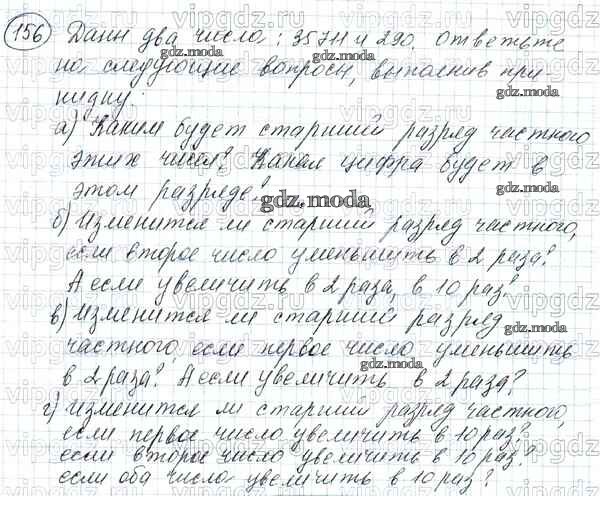 156 Даны два числа: 35711 и 290. Ответьте
на следующие вопросы, выполнив при-
кидку:
а) Каким будет старший разряд частного
этих чисел? Какая цифра будет в
этом разряде?
б) Изменится ли старший разряд частного,
если второе число уменьшить в 2 раза?
А если увеличить в 2 раза, в 10 раз?
в) Изменится ли старший разряд
частного, если первое число уменьшить
в 2 раза? А если увеличить в 2 раза?
г) Изменится ли старший разряд частного,
если первое число увеличить в 10 раз?
если второе число увеличить в 10 раз?
если оба числа увеличить в 10 раз?
gdz.moda
vipgdz.ru